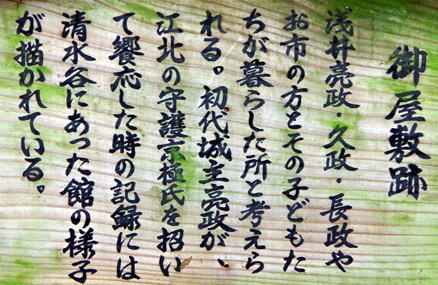 御屋敷跡
浅井亮政・久政・長政や
お市の方とその子どもた
ちが暮らした所と考えら
れる。初代城主亮政が、
江北の守護京極氏を招い
て饗応した時の記録には
清水谷にあった館の様子
が描かれている。